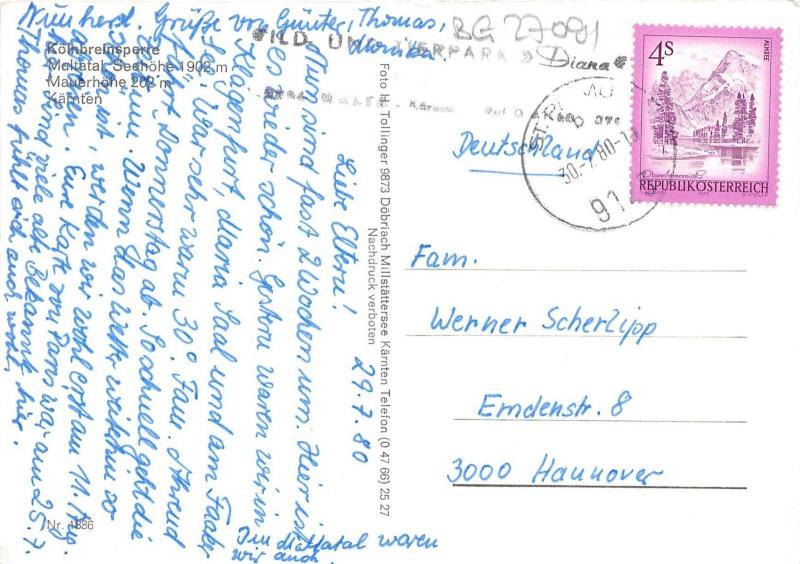 BG 27091
WILD- UND TIERPARK » Diana «
4S
ALMSEE
Oberösterreich
REPUBLIK ÖSTERREICH
30.-7.80-1
91
Kölnbreinsperre
Maltatal, Seehöhe 1902 m
Mauerhöhe 202 m
Kärnten
Nr. 1886
Foto H. Tollinger 9873 Döbriach Millstättersee Kärnten Telefon (0 47 66) 25 27
Nachdruck verboten
29.7.80
Liebe Eltern!
Nun sind fast 2 Wochen um. Hier ist
es wieder schön. Gestern waren wir in
Klagenfurt, Maria Saal und am Faaker
S. War sehr warm 30°. Fam. Ahrend
fährt Donnerstag ab. So schnell geht die
Zeit um. Wenn das Wetter weiterhin so
schön ist, werden wir wohl erst am 11. Aug.
Eure Karte von Paris war am 25.7.
hier. Sind viele alte Bekannte hier.
Thomas fühlt sich auch wohl.
Im Maltatal waren
wir auch.
herzl. Grüße von Günter, Thomas,
Monika
Deutschland
Fam.
Werner Scherlipp
Emdenstr. 8
3000 Hannover